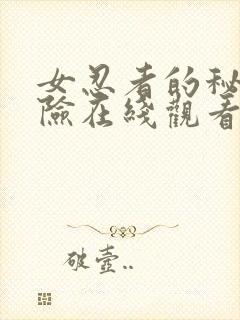 女忍者的秘
險在綫觀看
破壺..